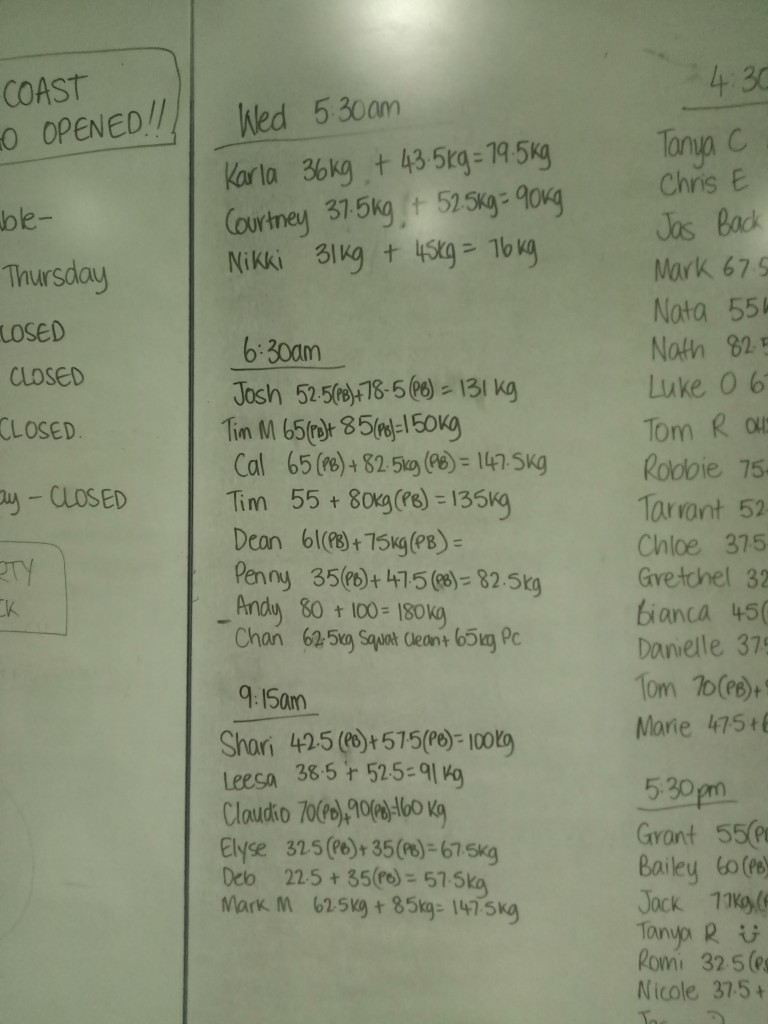 COAST
O OPENED!!
ble-
Thursday
LOSED
CLOSED
CLOSED.
ay - CLOSED
RTY
CK
Wed 5:30am
Karla 36kg + 43.5kg = 79.5kg
Courtney 37.5kg + 52.5kg = 90kg
Nikki 31kg + 45kg = 76kg
6:30am
Josh 52.5(PB)+78.5(PB) = 131kg
Tim M 65(PB)+ 85(PB)=150kg
Cal 65(PB)+82.5kg(PB) = 147.5kg
Tim 55 + 80kg(PB) = 135kg
Dean 61(PB)+75kg(PB) =
Penny 35(PB)+47.5(PB)= 82.5kg
- Andy 80 + 100 = 180kg
Chan 62.5kg Squat Clean + 65kg PC
9:15am
Shari 42.5(PB)+57.5(PB)= 100kg
Leesa 38.5 + 52.5 = 91kg
Claudio 70(PB)+90(PB)=160kg
Elyse 32.5(PB)+35(PB)=67.5kg
Deb 22.5 + 35(PB) = 57.5kg
Mark M 62.5kg + 85kg = 147.5kg
4:30
Tanya C
Chris E
Jas Back
Mark 67.5
Nata 55k
Nath 82.5
Luke O 6
Tom R
Robbie 75
Tarrant 52
Chloe 37.5
Gretchel 32
Bianca 45(
Danielle 37
Tom 70(PB)+
Marie 47.5+6
5:30pm
Grant 55(P
Bailey 60(PB)
Jack 77kg(
Tanya R
Romi 32.5(P
Nicole 37.5+